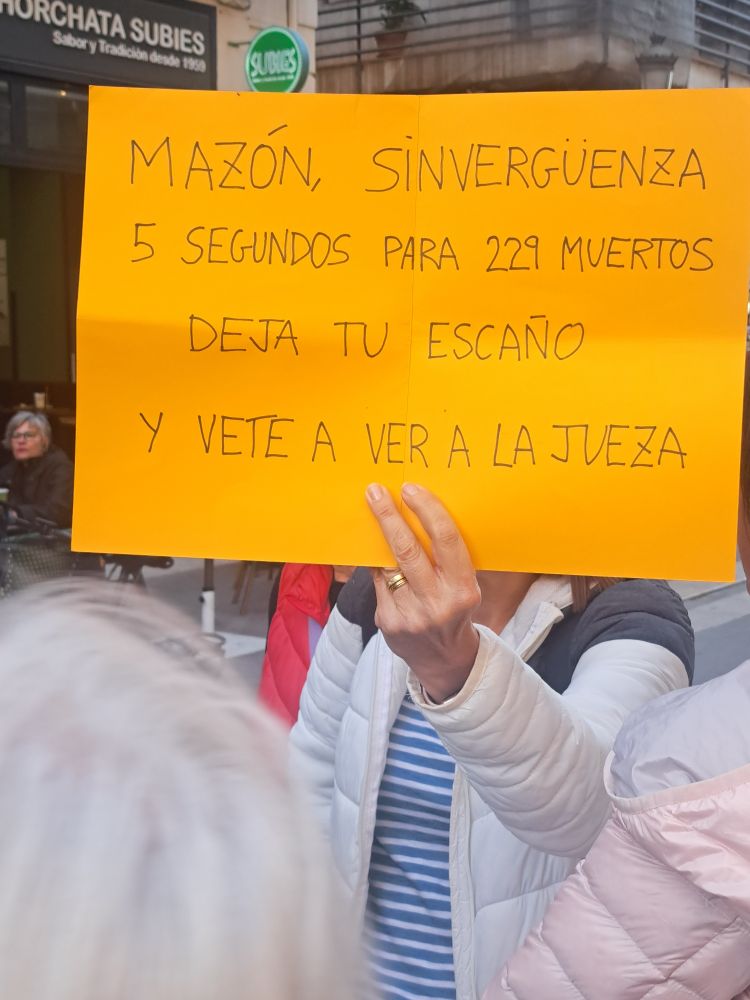 HORCHATA SUBIES
Sabor y Tradición desde 1959
SUBIES
MAZÓN, SINVERGÜENZA
5 SEGUNDOS PARA 229 MUERTOS
DEJA TU ESCAÑO
Y VETE A VER A LA JUEZA